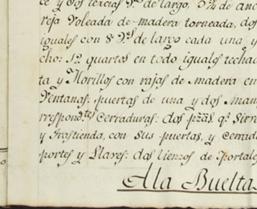 ce y dos tercias Vs. de largo, 5¾ de anc
reja Voleada de madera torneada, dos
iguales con 8 Vs. de largo cada una y
cho: 12 quartos en todo iguales techa
ta y Morillos con rajas de madera en
Ventanas, puertas de una y dos man
rrespond.tes Cerraduras: dos pzas. qe. sirve
y Trastienda, con sus puertas, y Cerrad
portes y Llaves: dos lienzos de Portale
A la Buelta